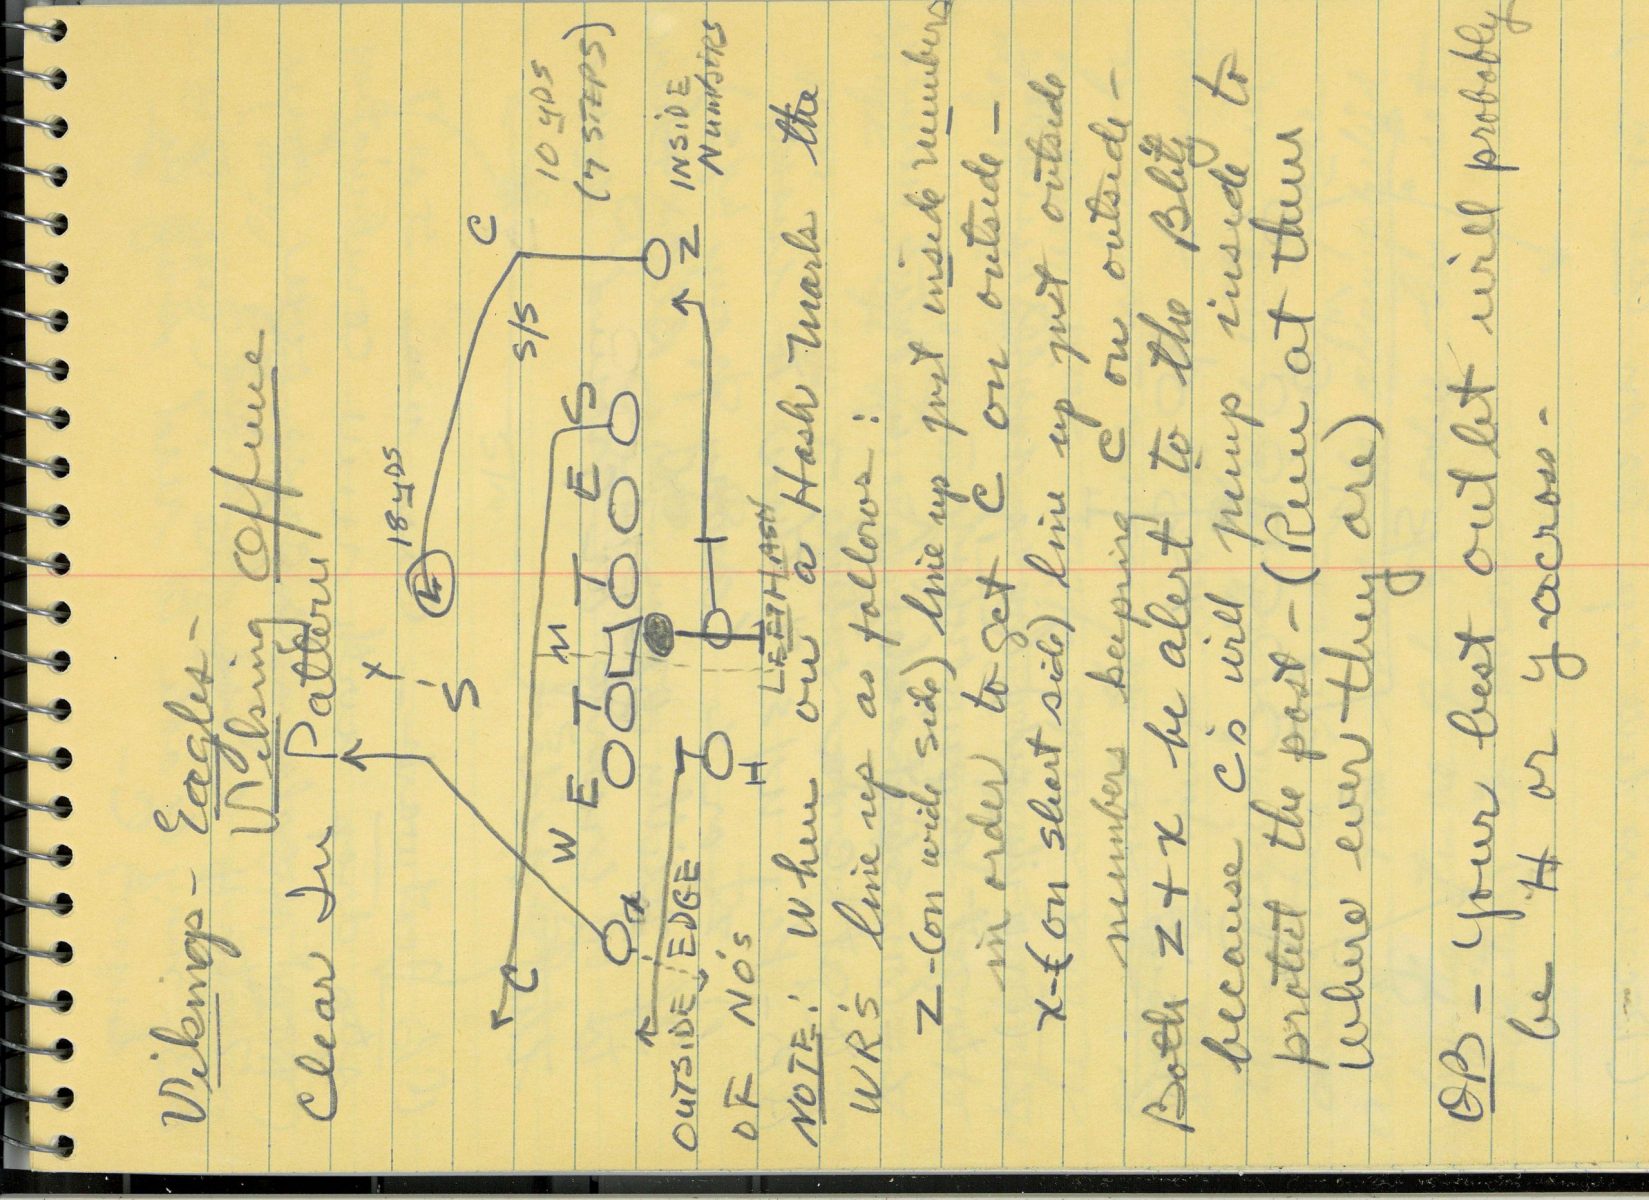 Vikings - Eagles -
Viking Offense
Clear In Pattern
18 yds
X
S
C
10 yds
(7 STEPS)
S/S
W
M
E T T E S
C
X
Z
INSIDE
NUMBERS
H
OUTSIDE EDGE
OF NO'S
LEFT HASH
NOTE: When on a Hash Mark the
WR's line up as follows:
Z-(on wide side) line up just inside numbers
in order to get C on outside -
X-(on short side) line up just outside
numbers keeping C on outside -
Both Z + X be alert to the Blitz
because C's will jump inside to
protect the post - (Run at them
where ever they are)
QB - your best outlet will probably
be H or Y across -